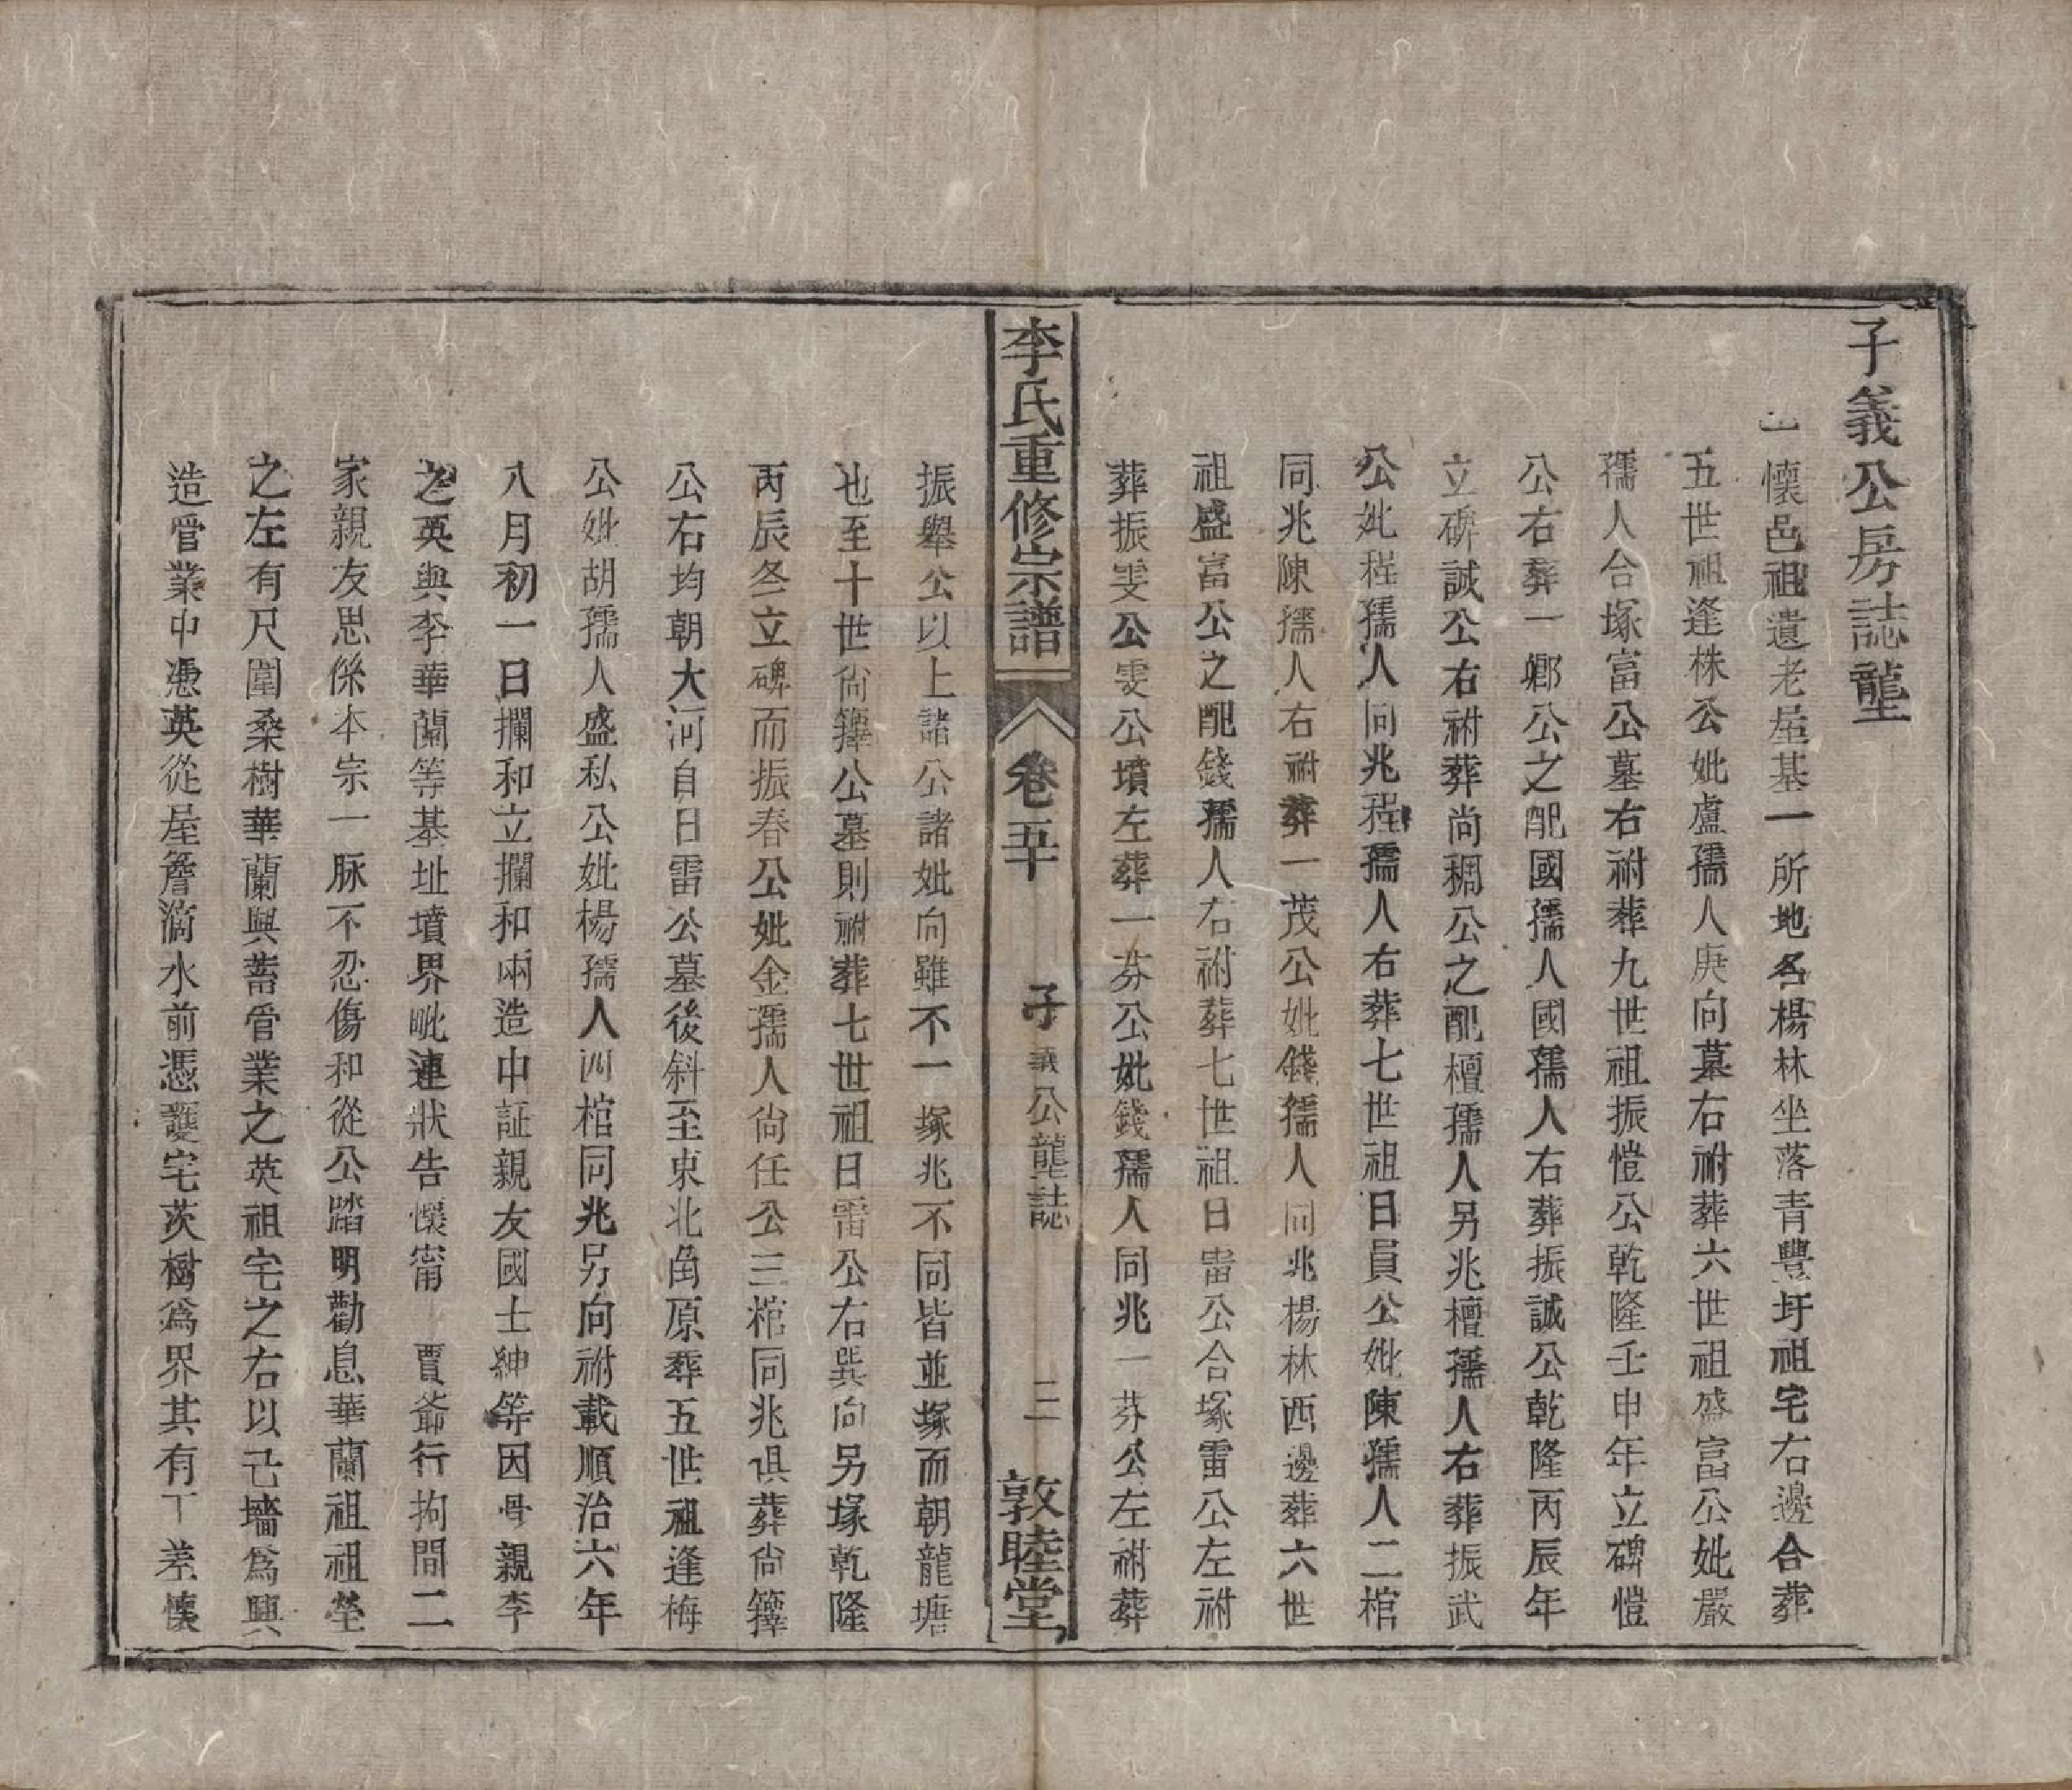 子義公房誌壟
一懷邑祖遺老屋基一所地名楊林坐落青豐圩祖宅右邊合葬
五世祖逢株公妣盧孺人庚向墓右祔葬六世祖盛富公妣嚴
孺人合塚富公墓右祔葬九世祖振愷公乾隆壬申年立碑愷
公右葬一鄉公之配國孺人國孺人右葬振誠公乾隆丙辰年
立碑誠公右祔葬尚稠公之配檀孺人另兆檀孺人右葬振武
公妣程孺人同兆程孺人右葬七世祖日員公妣陳孺人二棺
同兆陳孺人右祔葬一茂公妣錢孺人同兆楊林西邊葬六世
祖盛富公之配錢孺人右祔葬七世祖日雷公合塚雷公左祔
葬振雯公雯公墳左葬一芬公妣錢孺人同兆一芬公左祔葬
李氏重修宗譜
卷五十
子義公壟誌
二
敦睦堂
振舉公以上諸公諸妣向雖不一塚兆不同皆並塚而朝龍塘
也至十世尙籜公墓則祔葬七世祖日雷公右巽向另塚乾隆
丙辰冬立碑而振春公妣金孺人尙任公三棺同兆俱葬尙籜
公右均朝大河自日雷公墓後斜至東北角原葬五世祖逢梅
公妣胡孺人盛私公妣楊孺人四棺同兆另向祔載順治六年
八月初一日攔和立攔和兩造中証親友國士紳等因骨親李
之英與李華蘭等基址墳界毗連狀告懷甯　賈爺行拘間二
家親友思係本宗一脉不忍傷和從公踏明勸息華蘭祖祖塋
之左有尺圍桑樹華蘭興蓄管業之英祖宅之右以己墻爲興
造管業中憑英從屋簷滴水前憑護宅茨樹爲界其有丁差懷